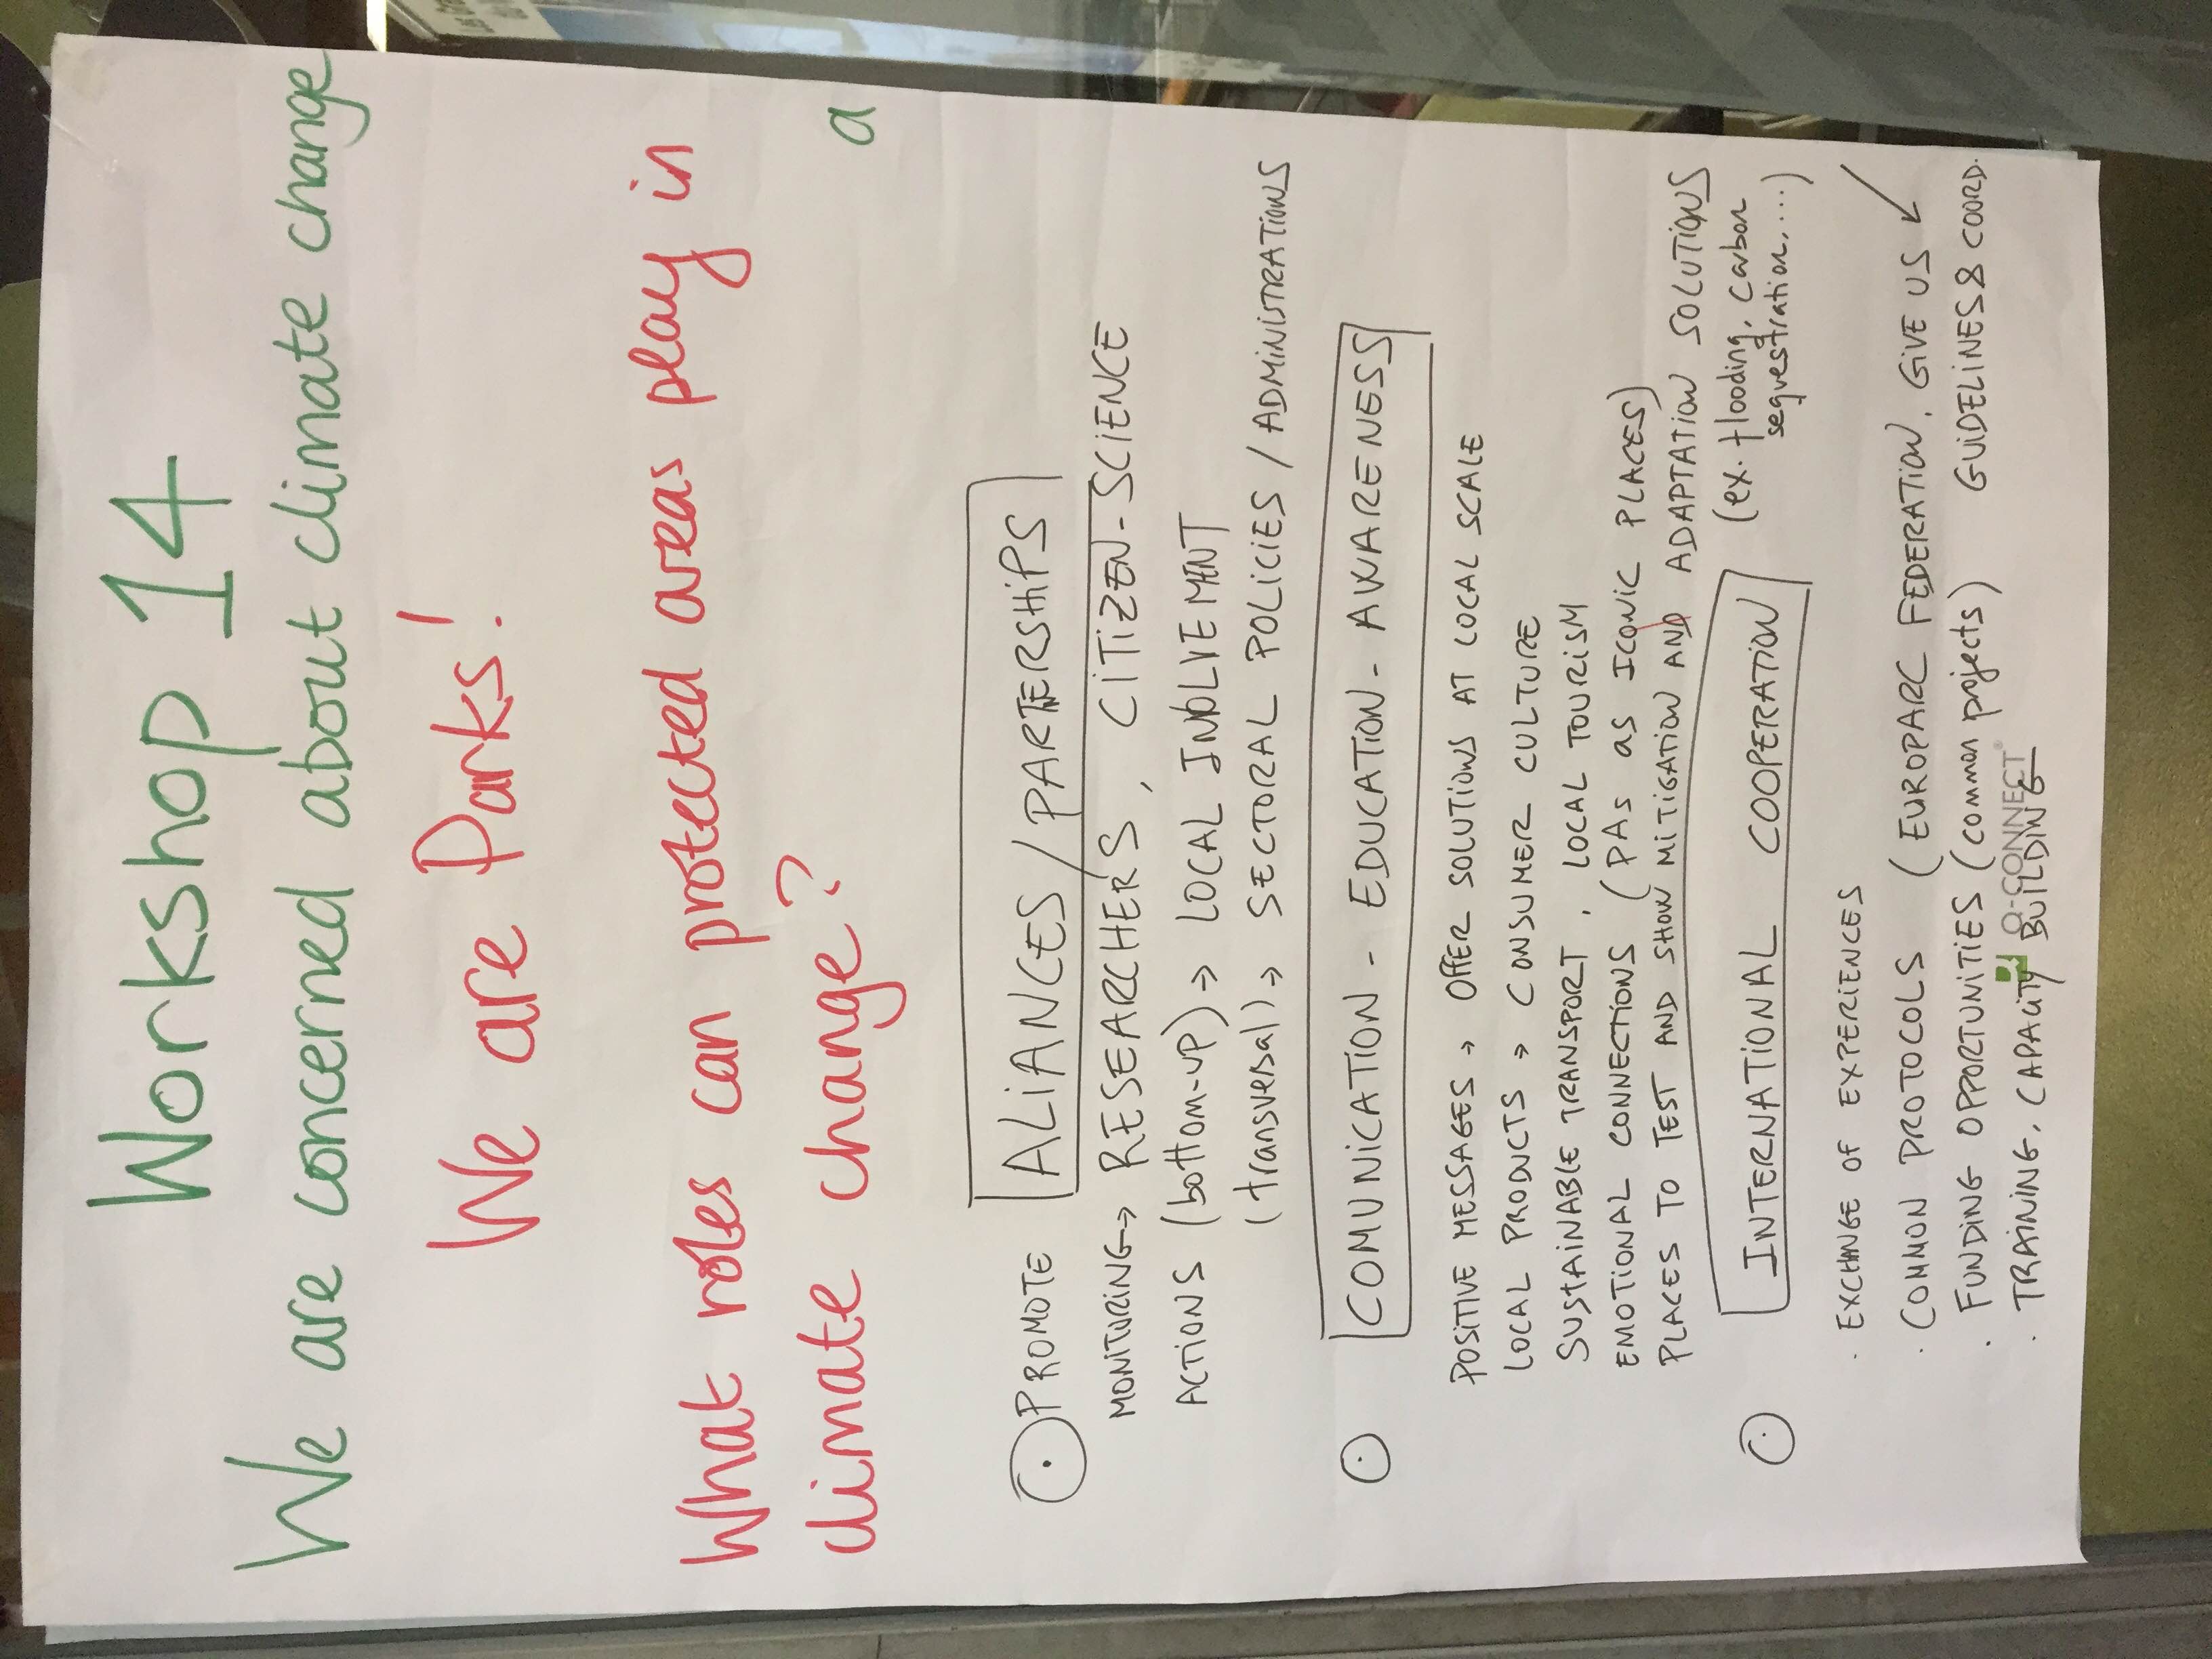 Workshop 14
We are concerned about climate change
We are Parks!
What roles can protected areas play in
climate change?
a
PROMOTE ALIANCES / PARTERSHIPS
MONITORING → RESEARCHERS, CITIZEN-SCIENCE
ACTIONS (bottom-up) → LOCAL INVOLVEMENT
(transversal) → SECTORAL POLICIES / ADMINISTRATIONS
COMUNICATION - EDUCATION - AWARENESS
POSITIVE MESSAGES → OFFER SOLUTIONS AT LOCAL SCALE
LOCAL PRODUCTS → CONSUMER CULTURE
SUSTAINABLE TRANSPORT, LOCAL TOURISM
EMOTIONAL CONNECTIONS (PAs as ICONIC PLACES)
PLACES TO TEST AND SHOW MITIGATION AND ADAPTATION SOLUTIONS
(ex. flooding, carbon
sequestration,....)
INTERNATIONAL COOPERATION
· EXCHNGE OF EXPERIENCES
· COMMON PROTOCOLS (EUROPARC FEDERATION, GIVE US
GUIDELINES & COORD.
· FUNDING OPPORTUNITIES (common projects)
· TRAINING, CAPACITY BUILDING
Q-CONNECT®